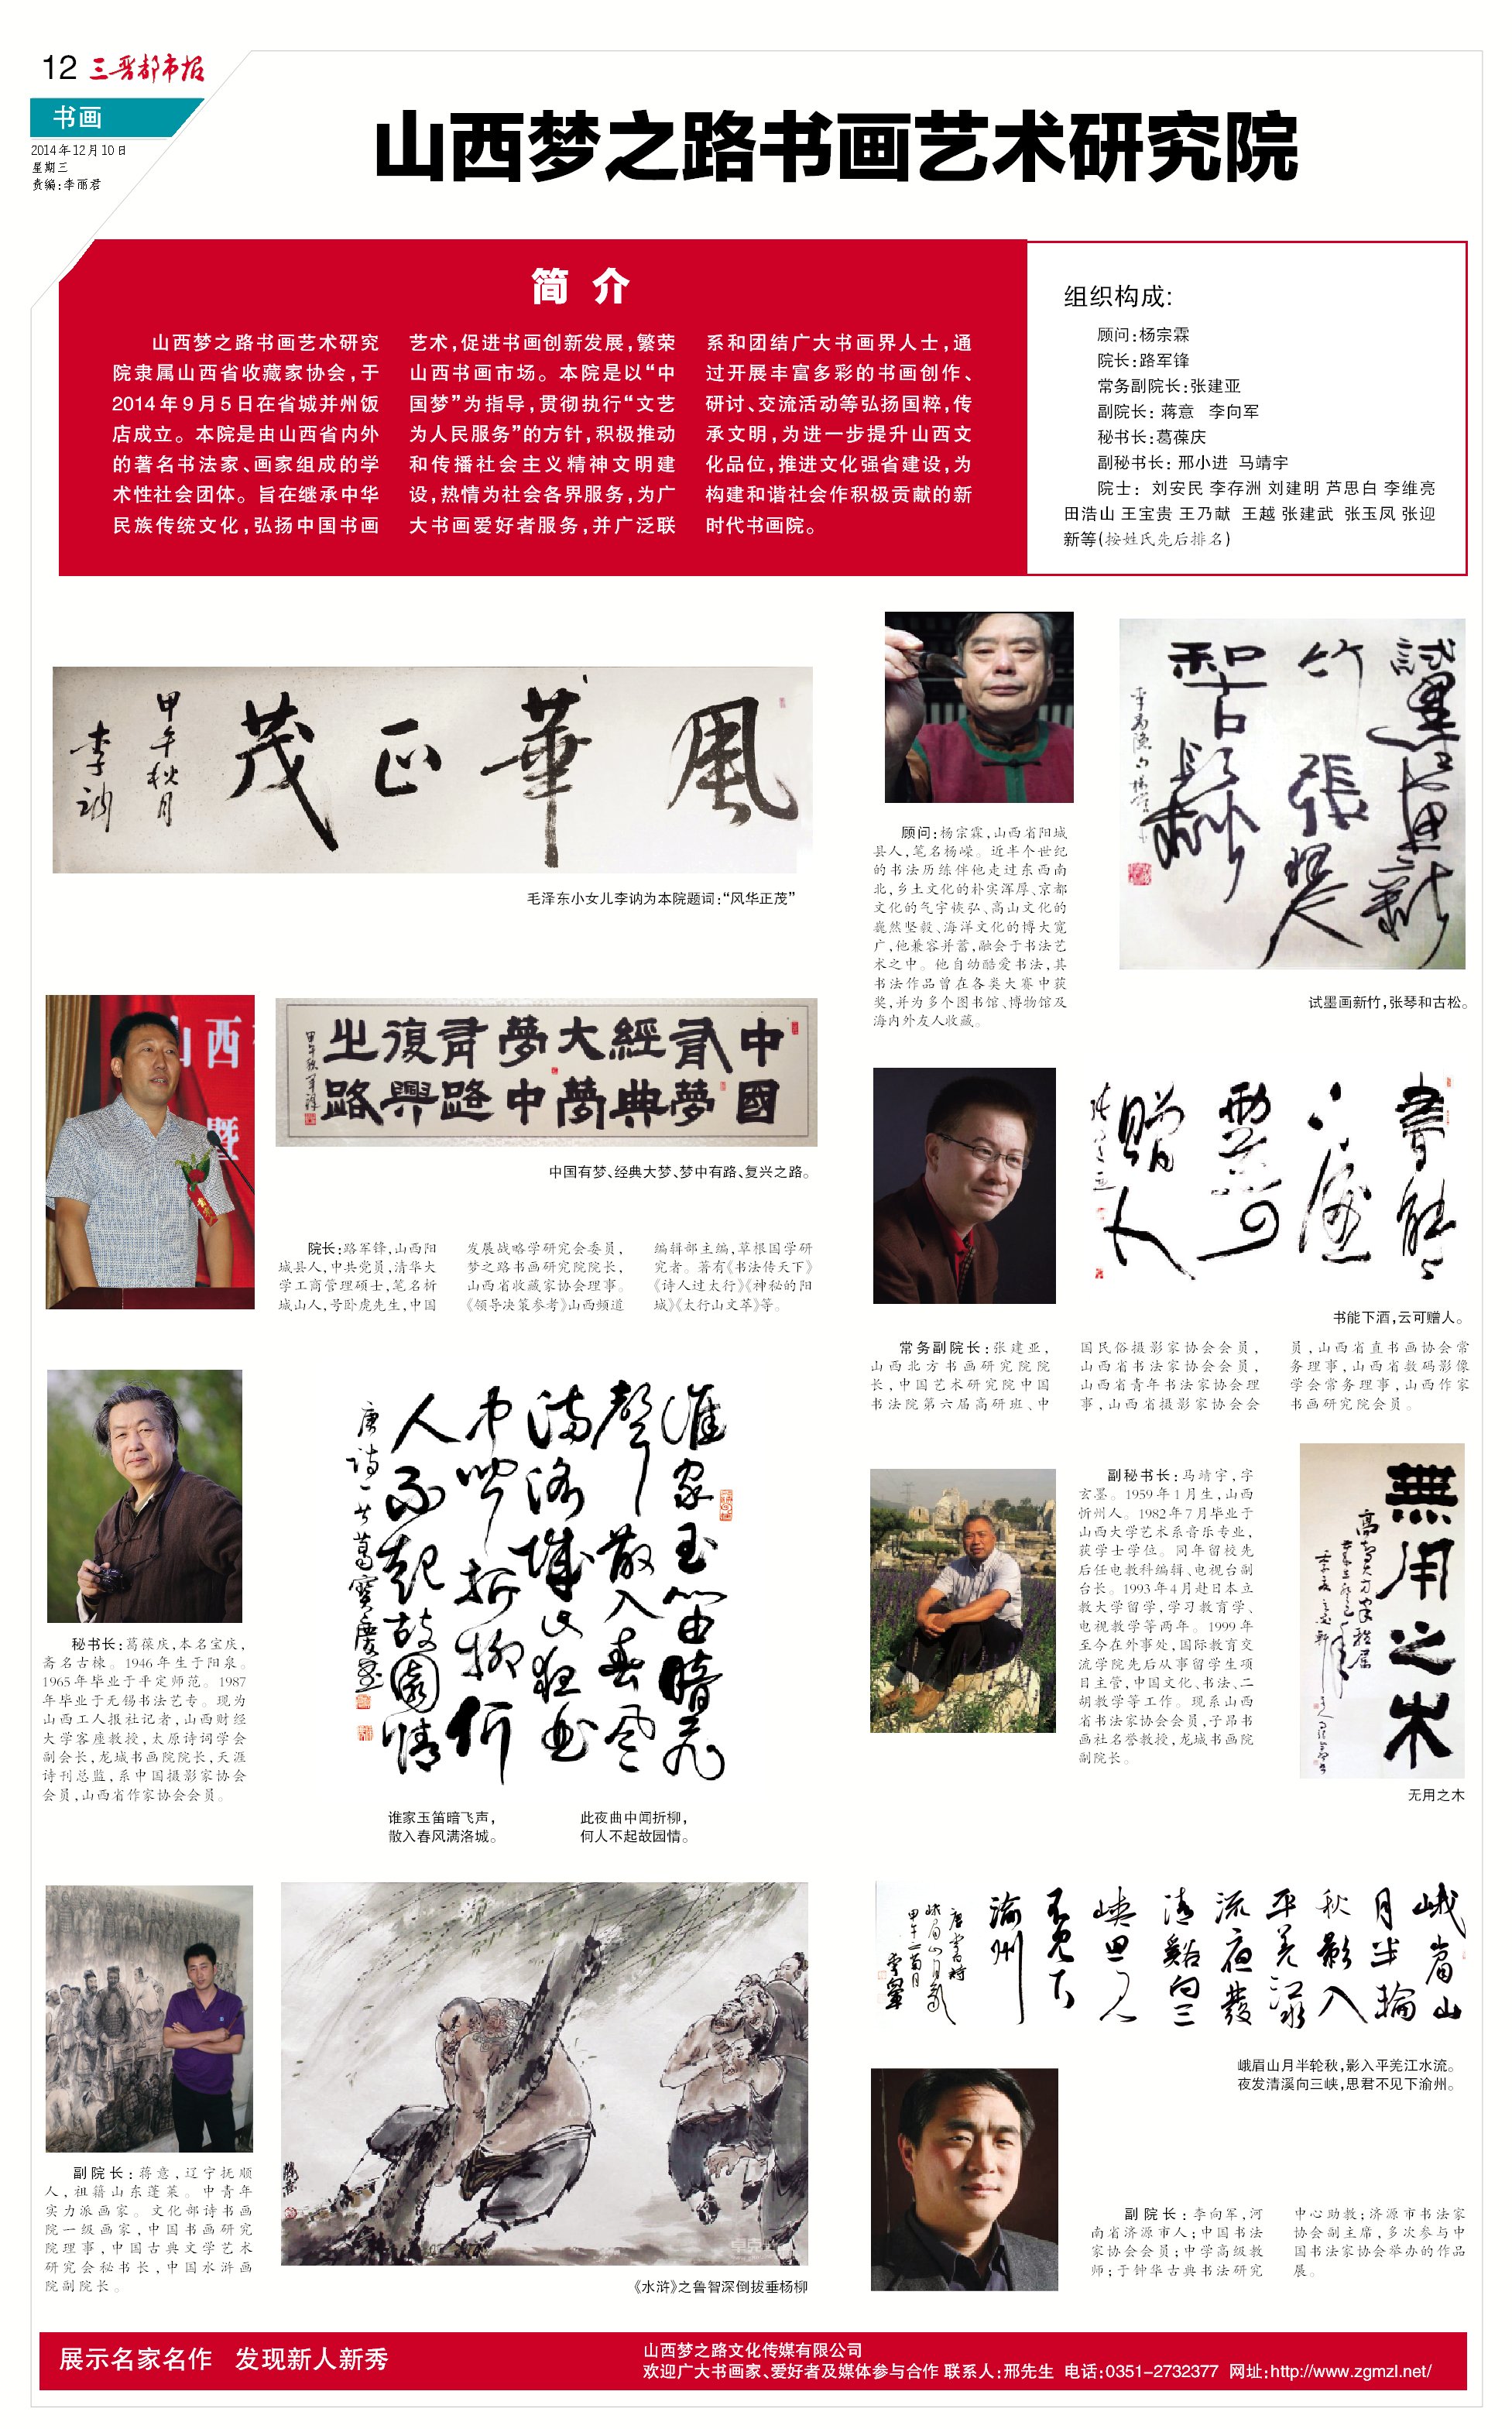 12 三晋都市报
书画
2014年12月10日
星期三
责编:李丽君
山西梦之路书画艺术研究院
简 介
山西梦之路书画艺术研究
院隶属山西省收藏家协会,于
2014年9月5日在省城并州饭
店成立。本院是由山西省内外
的著名书法家、画家组成的学
术性社会团体。旨在继承中华
民族传统文化,弘扬中国书画
艺术,促进书画创新发展,繁荣
山西书画市场。本院是以“中
国梦”为指导,贯彻执行“文艺
为人民服务”的方针,积极推动
和传播社会主义精神文明建
设,热情为社会各界服务,为广
大书画爱好者服务,并广泛联
系和团结广大书画界人士,通
过开展丰富多彩的书画创作、
研讨、交流活动等弘扬国粹,传
承文明,为进一步提升山西文
化品位,推进文化强省建设,为
构建和谐社会作积极贡献的新
时代书画院。
组织构成:
顾问:杨宗霖
院长:路军锋
常务副院长:张建亚
副院长: 蒋意 李向军
秘书长:葛葆庆
副秘书长: 邢小进 马靖宇
院士: 刘安民 李存洲 刘建明 芦思白 李维亮
田浩山 王宝贵 王乃献 王越 张建武 张玉凤 张迎
新等(按姓氏先后排名)
風華正茂
甲午秋月
李讷
毛泽东小女儿李讷为本院题词:“风华正茂”
顾问:杨宗霖,山西省阳城
县人,笔名杨嵘。近半个世纪
的书法历练伴他走过东西南
北,乡土文化的朴实浑厚、京都
文化的气宇恢弘、高山文化的
巍然坚毅、海洋文化的博大宽
广,他兼容并蓄,融会于书法艺
术之中。他自幼酷爱书法,其
书法作品曾在各类大赛中获
奖,并为多个图书馆、博物馆及
海内外友人收藏。
試墨画新
竹張琴
和古松
试墨画新竹,张琴和古松。
中國
有夢
經典
大夢
夢中
有路
復興
之路
甲午秋軍鋒
中国有梦、经典大梦、梦中有路、复兴之路。
院长:路军锋,山西阳
城县人,中共党员,清华大
学工商管理硕士,笔名析
城山人,号卧虎先生,中国
发展战略学研究会委员,
梦之路书画研究院院长,
山西省收藏家协会理事。
《领导决策参考》山西频道
编辑部主编,草根国学研
究者。著有《书法传天下》
《诗人过太行》《神秘的阳
城》《太行山文萃》等。
書能
下酒
雲可
贈人
张建亚
书能下酒,云可赠人。
常务副院长:张建亚,
山西北方书画研究院院
长,中国艺术研究院中国
书法院第六届高研班、中
国民俗摄影家协会会员,
山西省书法家协会会员,
山西省青年书法家协会理
事,山西省摄影家协会会
员,山西省直书画协会常
务理事,山西省数码影像
学会常务理事,山西作家
书画研究院会员。
秘书长:葛葆庆,本名宝庆,
斋名古楝。1946年生于阳泉。
1965年毕业于平定师范。1987
年毕业于无锡书法艺专。现为
山西工人报社记者,山西财经
大学客座教授,太原诗词学会
副会长,龙城书画院院长,天涯
诗刊总监,系中国摄影家协会
会员,山西省作家协会会员。
誰家玉笛暗飛
聲散入春風
满洛城此夜曲
中闻折柳何
人不起故園情
唐诗一首葛寶慶書
谁家玉笛暗飞声,
散入春风满洛城。
此夜曲中闻折柳,
何人不起故园情。
副秘书长:马靖宇,字
玄墨。1959年1月生,山西
忻州人。1982年7月毕业于
山西大学艺术系音乐专业,
获学士学位。同年留校先
后任电教科编辑、电视台副
台长。1993年4月赴日本立
教大学留学,学习教育学、
电视教学等两年。1999年
至今在外事处,国际教育交
流学院先后从事留学生项
目主管,中国文化、书法、二
胡教学等工作。现系山西
省书法家协会会员,子昂书
画社名誉教授,龙城书画院
副院长。
無用之木
无用之木
副院长:蒋意,辽宁抚顺
人,祖籍山东蓬莱。中青年
实力派画家。文化部诗书画
院一级画家,中国书画研究
院理事,中国古典文学艺术
研究会秘书长,中国水浒画
院副院长。
《水浒》之鲁智深倒拔垂杨柳
峨眉山
月半輪
秋影入
平羌江水
流夜發
清谿向三
峡思君
不见下
渝州
唐李白诗
峨眉山月歌
峨眉山月半轮秋,影入平羌江水流。
夜发清溪向三峡,思君不见下渝州。
副院长:李向军,河
南省济源市人;中国书法
家协会会员;中学高级教
师;于钟华古典书法研究
中心助教;济源市书法家
协会副主席,多次参与中
国书法家协会举办的作品
展。
展示名家名作 发现新人新秀
山西梦之路文化传媒有限公司
欢迎广大书画家、爱好者及媒体参与合作 联系人:邢先生 电话:0351-2732377 网址:http://www.zgmzl.net/